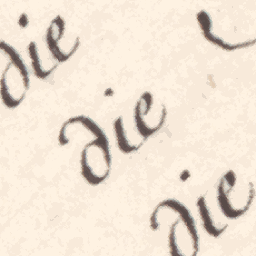 die
die
die